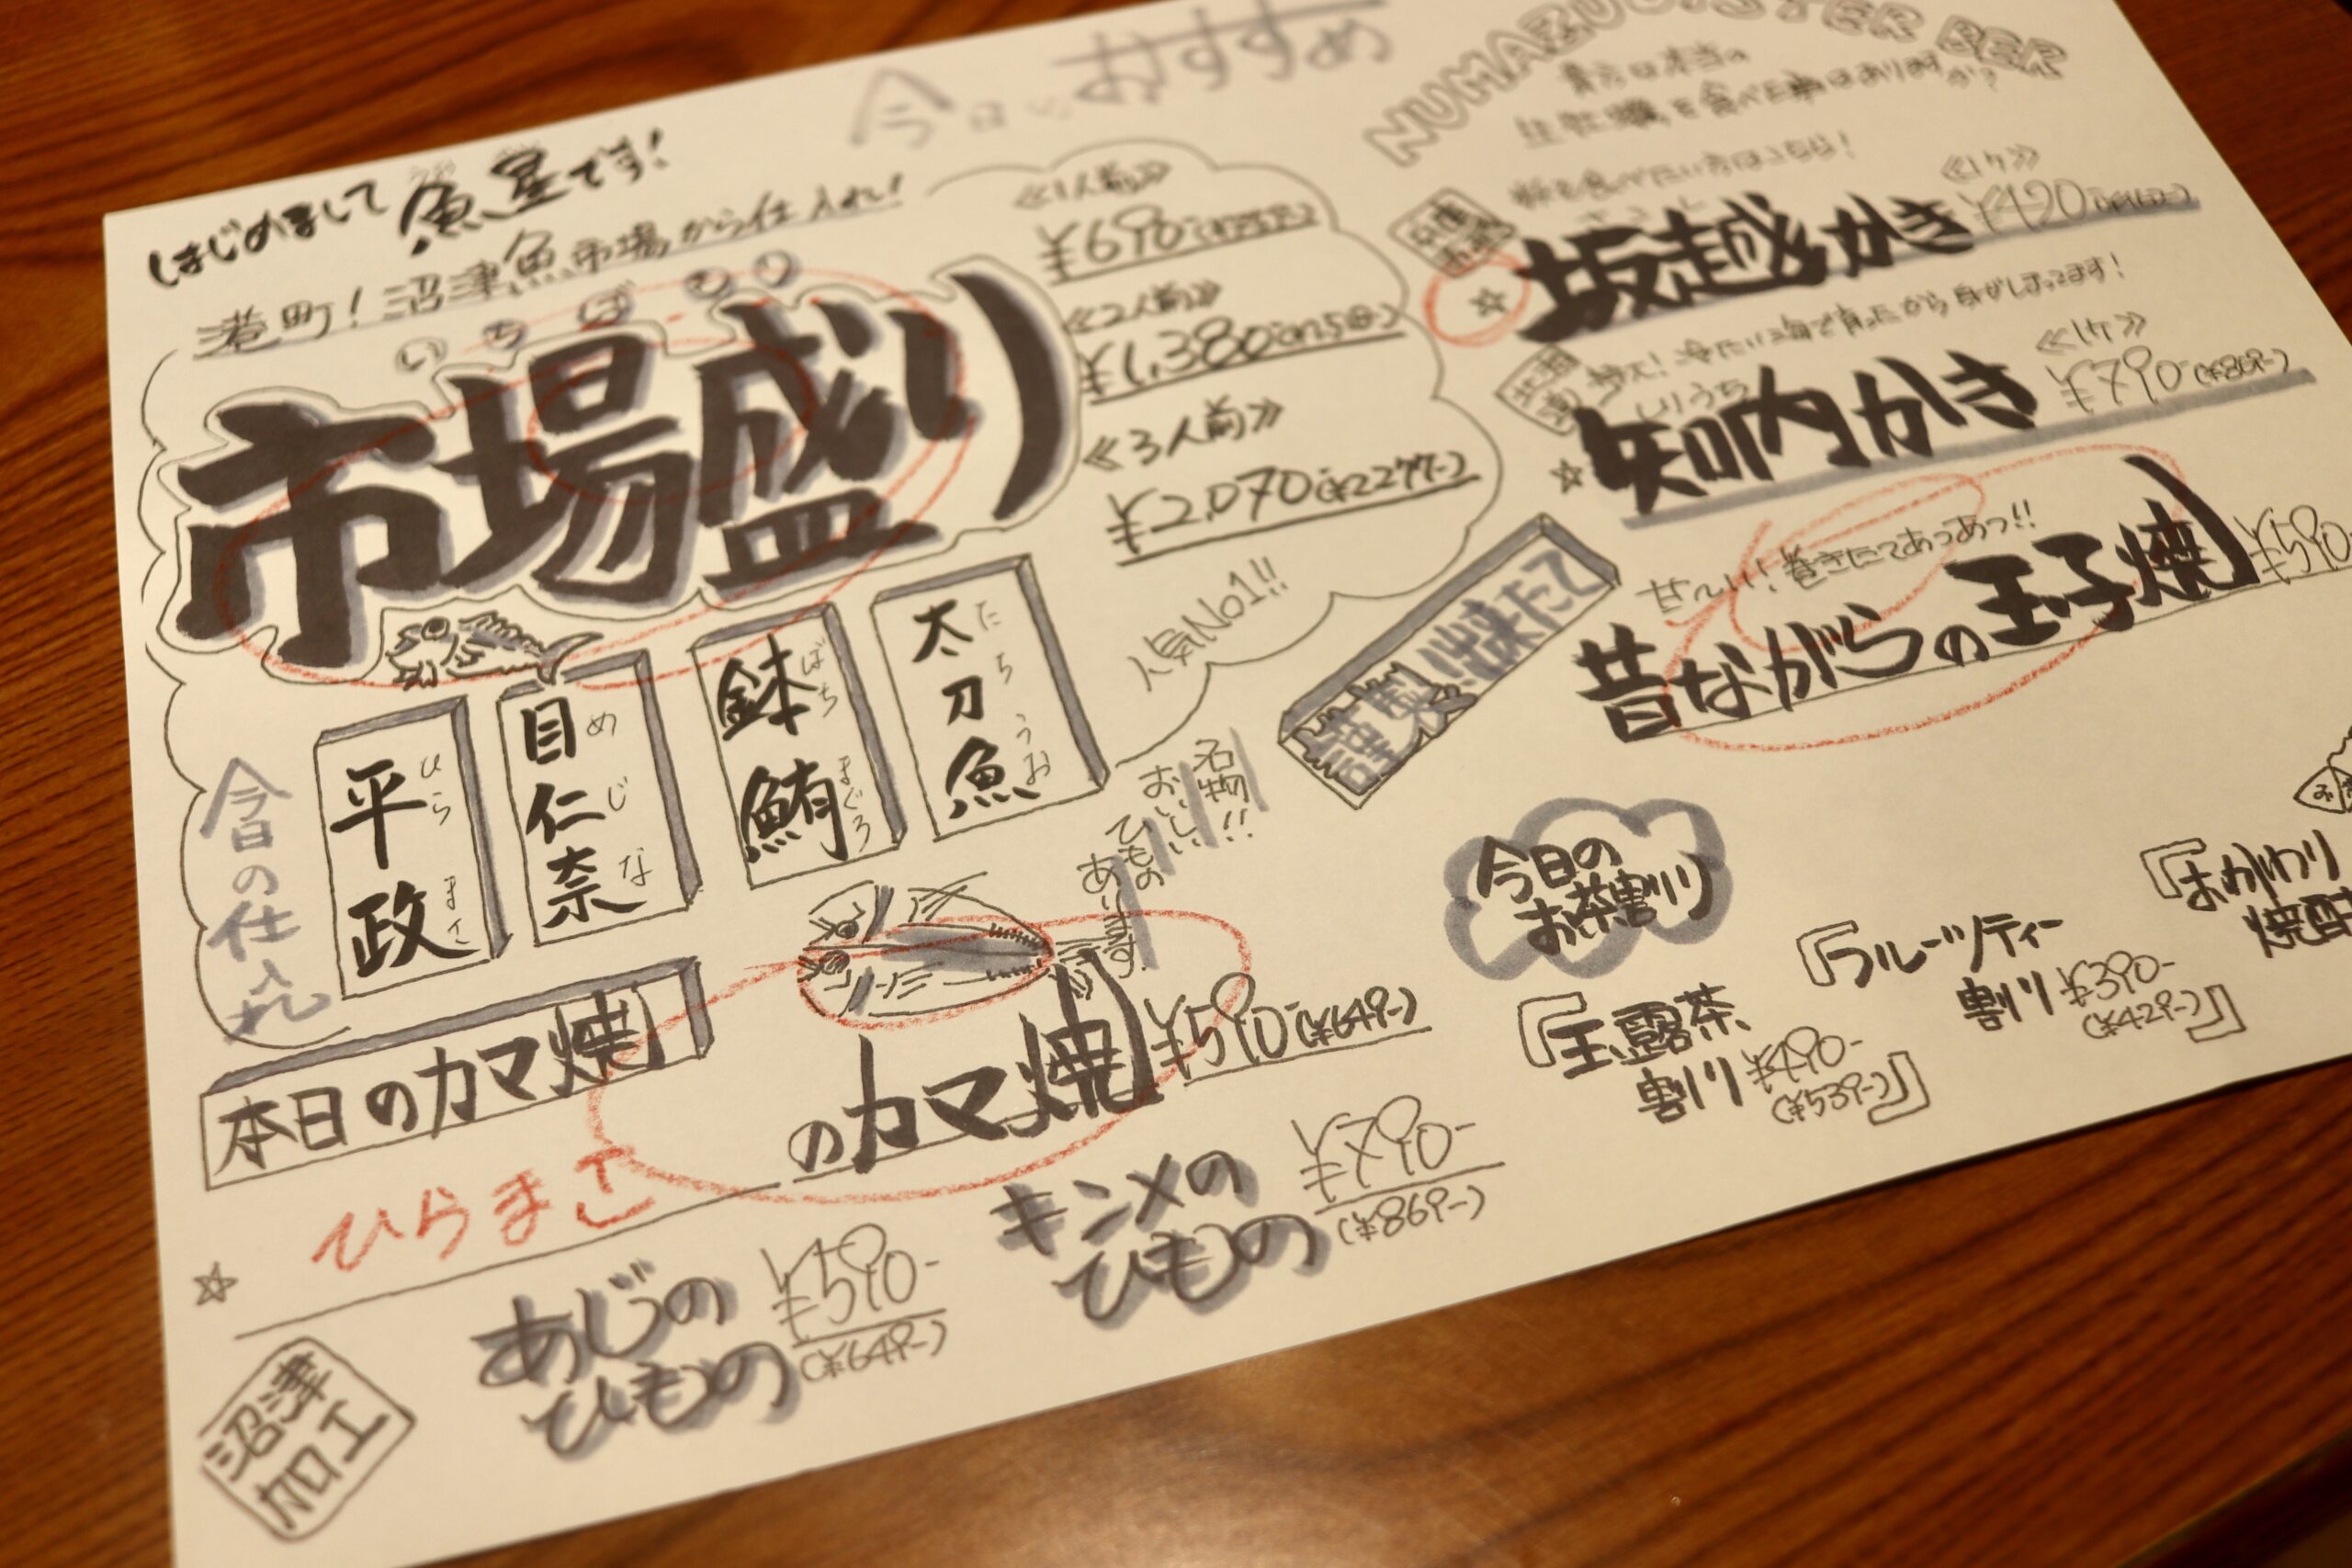 今日の おすすめ
はじめまして 魚星です!
港町!沼津魚市場から仕入れ!
いちばもり
市場盛り
≪1人前≫
¥690
≪2人前≫
¥1,380
≪3人前≫
¥2,070(¥2277-)
人気No1!!
今日の仕入れ
平政
ひらまさ
目仁奈
めじな
鉢鮪
ばちまぐろ
太刀魚
たちうお
名物!!
おいしい
ひもの
あります
本日のカマ焼
ひらまさ
のカマ焼 ¥590-(¥649-)
沼津
加工
あじの
ひもの
¥590-
(¥649-)
キンメの
ひもの
¥790-
(¥869-)
NUMAZU OYSTER BER
貴方は本当の
生牡蠣を食べた事はありますか?
坂越かき
≪1ケ≫
¥490
冷たい海で育ったから身がしまってます!
しりうち
知内かき
≪1ケ≫
¥790-(¥869-)
謹製!出来たて
甘〜い!巻きたてあつあつ!!
昔ながらの玉子焼 ¥590-
今日の
お茶割り
『玉露茶
割り ¥490-
(¥539-)』
『フルーツティー
割り ¥390-
(¥429-)』
『おかわり
焼酎